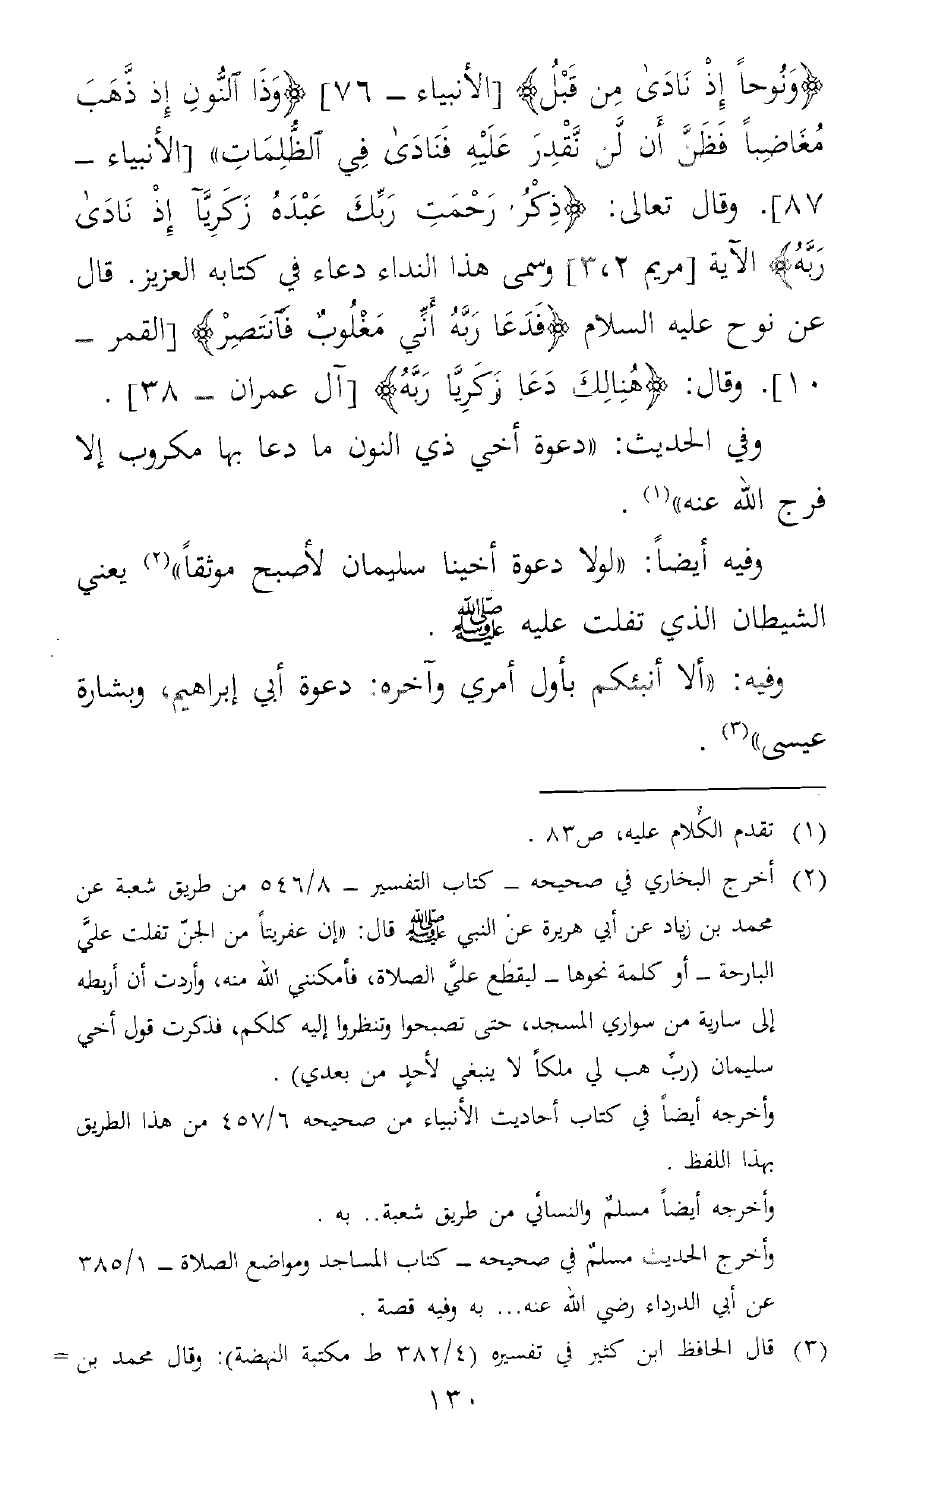 ﴿وَنُوحاً إِذْ نَادَىٰ مِن قَبْلُ﴾ [الأنبياء ــ ٧٦] ﴿وَذَا ٱلنُّونِ إِذ ذَّهَبَ
مُغَاضِباً فَظَنَّ أَن لَّن نَّقْدِرَ عَلَيْهِ فَنَادَىٰ فِي ٱلظُّلِمَاتِ» [الأنبياء ــ
٨٧]. وقال تعالى: ﴿ذِكْرُ رَحْمَتِ رَبِّكَ عَبْدَهُ زَكَرِيَّآ إِذْ نَادَىٰ
رَبَّهُ﴾ الآية [مريم ٢، ٣] وسمى هذا النداء دعاء في كتابه العزيز. قال
عن نوح عليه السلام ﴿فَدَعَا رَبَّهُ أَنِّي مَغْلُوبٌ فَٱنتَصِرْ﴾ [القمر ــ
١٠]. وقال: ﴿هُنِالِكَ دَعَا زَكَرِيَّا رَبَّهُ﴾ [آل عمران ــ ٣٨] .
وفي الحديث: «دعوة أخي ذي النون ما دعا بها مكروب إلا
فرج الله عنه»(١) .
وفيه أيضاً: «لولا دعوة أخينا سليمان لأصبح موثقاً»(٢) يعني
الشيطان الذي تفلت عليه ﷺ .
وفيه: «ألا أنبئكم بأول أمري وآخره: دعوة أبي إبراهيم، وبشارة
عيسى»(٣) .
(١) تقدم الكُلام عليه، ص٨٣ .
(٢) أخرج البخاري في صحيحه ــ كتاب التفسير ــ ٥٤٦/٨ من طريق شعبة عن
محمد بن زياد عن أبي هريرة عنْ النبي ﷺ قال: «إن عفريتاً من الجنّ تفلت عليَّ
البارحة ــ أو كلمة نحوها ــ ليقطع عليَّ الصلاة، فأمكنني الله منه، وأردت أن أربطه
إلى سارية من سواري المسجد، حتى تصبحوا وتنظروا إليه كلكم، فذكرت قول أخي
سليمان (ربِّ هب لي ملكاً لا ينبغي لأحدٍ من بعدي) .
وأخرجه أيضاً في كتاب أحاديث الأنبياء من صحيحه ٤٥٧/٦ من هذا الطريق
بهذا اللفظ .
وأخرجه أيضاً مسلمٌ والنسائي من طريق شعبة.. به .
وأخرج الحديث مسلمٌ في صحيحه ــ كتاب المساجد ومواضع الصلاة ــ ٣٨٥/١
عن أبي الدرداء رضي الله عنه... به وفيه قصة .
(٣) قال الحافظ ابن كثير في تفسيره (٣٨٢/٤ ط مكتبة النهضة): وقال محمد بن =
١٣٠